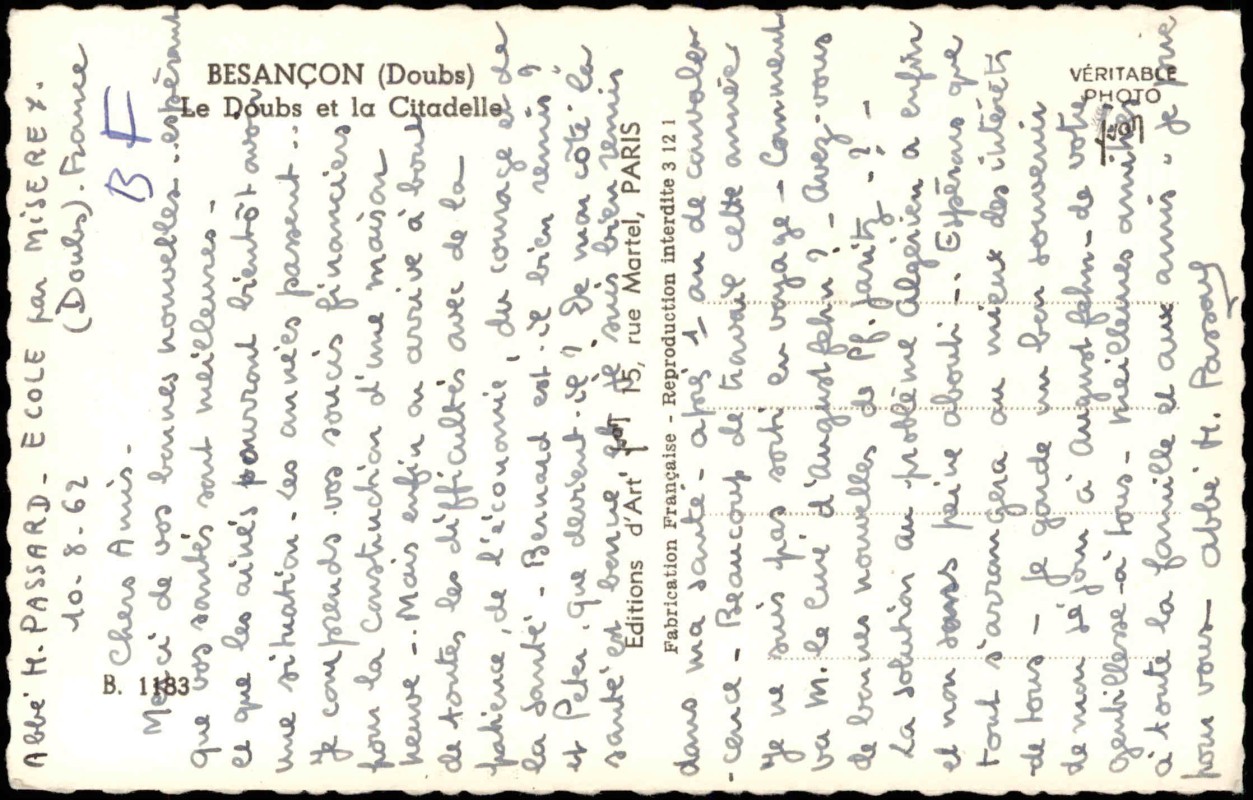 BESANÇON (Doubs)
Le Doubs et la Citadelle
VÉRITABLE
PHOTO
B. 1183
Editions d'Art 15, rue Martel, PARIS
Fabrication Française - Reproduction interdite 3 12 1
B F
Abbé H. PASSARD - ECOLE par MISEREY.
10.8.62 (Doubs). France
Chers Amis -
Merci de vos bonnes nouvelles.. espérant
que vos santés sont meilleures -
et que les aînés pourront bientôt avoir
une situation. les années passent...
Je comprends vos soucis financiers
pour la construction d'une maison
neuve - Mais enfin on arrive à bout
de toutes les difficultés avec de la
patience, de l'économie, du courage et de
la santé - Bernard est-il bien remis ?
et Peter. que devient-il ? De mon côté la
santé est bonne je suis bien remis
dans ma santé - après 1 an de convales
-cence - Beaucoup de travail cette année
Je ne suis pas sorti en voyage - Comment
va M. le Curé d'August fehn ? - Avez-vous
de bonnes nouvelles de Pf. - ?
La solution au problème Algérien a enfin
et non sans peine abouti -. Espérons que
tout s'arrangera au mieux des intérêts
de tous - Je garde un bon souvenir
de mon séjour à August fehn - de votre
gentillesse - à tous - meilleures amitiés
à toute la famille et aux amis - je prie
pour vous - abbé H. Passard